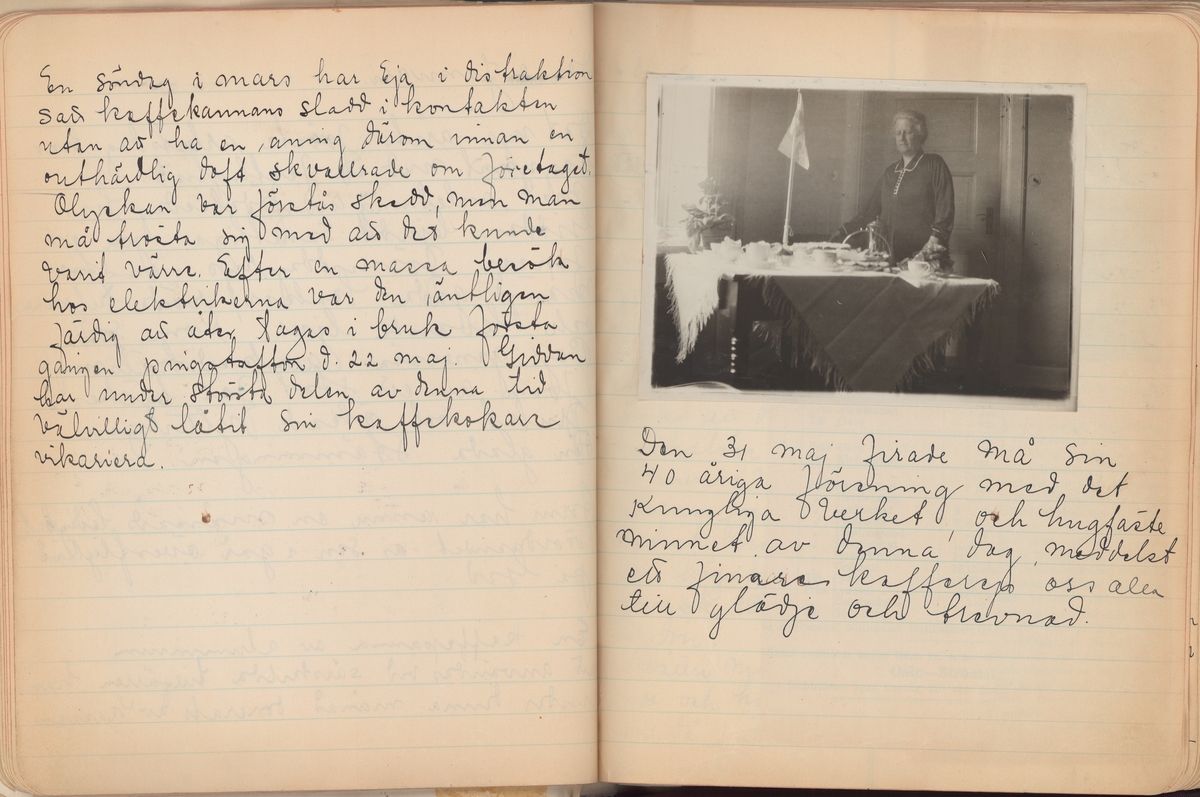 En söndag i mars har Eja i distraktion
satt kaffekannans sladd i kontakten
utan att ha en aning därom innan en
outhärdlig doft skvallrade om företaget.
Olyckan var förstås skedd, men man
må trösta sig med att det kunde
varit värre. Efter en massa besök
hos elektrikerna var den äntligen
färdig att åter tagas i bruk första
gången pingstafton d. 22 maj. Giddan
har under största delen av denna tid
välvilligt låtit sin kaffekokare
vikariera.
Den 31 maj firade Må sin
40 åriga förening med det
Kungliga Verket, och hugfäste
minnet av denna dag meddelst
ett finare kafferep oss alla
till glädje och trevnad.